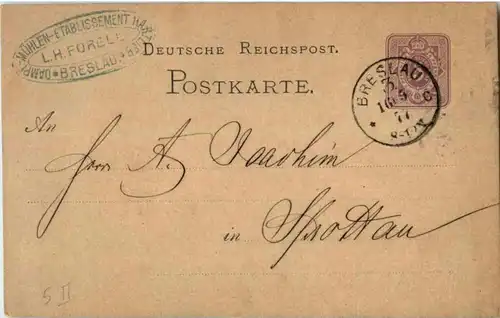 DAMPF-MÜHLEN-ETABLISSEMENT
L.H. FORELL
BRESLAU
DEUTSCHE REICHSPOST.
POSTKARTE.
BRESLAU
16 5
77
C
An
Herrn A. Joachim
in Sprottau
5 II